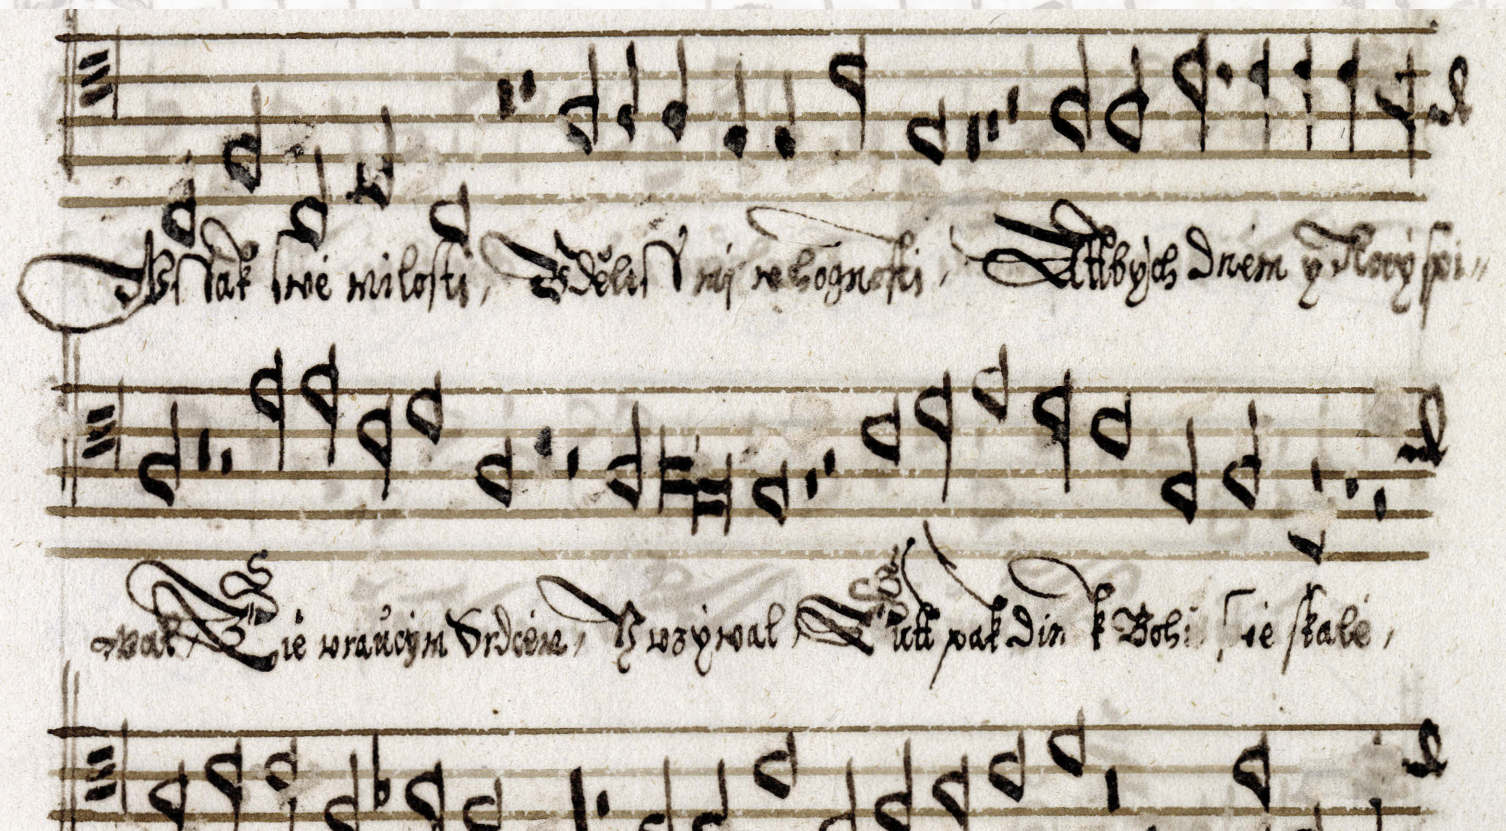 Wssak swé milosti, Vděliss mi w hognosti, Abych dnem y Nocý spi=
wal, Tie wraucým Srdcem, Y wzýwal, pak din k Bohu skale,